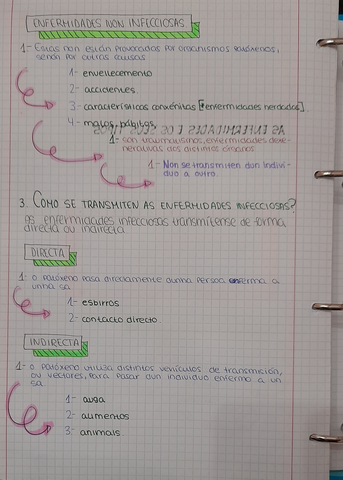 ENFERMIDADES NON INFECCIOSAS
1- Estas non están provocadas por organismos patóxenos,
senón por outras causas
1- envellecemento
2- accidentes
3- características conxénitas [enfermidades herdadas]
4- malos hábitos
1- son traumatismos, enfermidades dexe-
nerativas dos distintos órganos
1- Non se transmiten dun indivi-
duo a outro.
3. COMO SE TRANSMITEN AS ENFERMIDADES INFECCIOSAS?
as enfermidades infecciosas transmítense de forma
directa ou indirecta
DIRECTA
1- o patóxeno pasa directamente dunha persoa enferma a
unha sa
1- esbirros
2- contacto directo
INDIRECTA
1- o patóxeno utiliza distintos vehículos de transmisión,
ou vectores, para pasar dun individuo enfermo a un
sa
1- auga
2- alimentos
3- animais